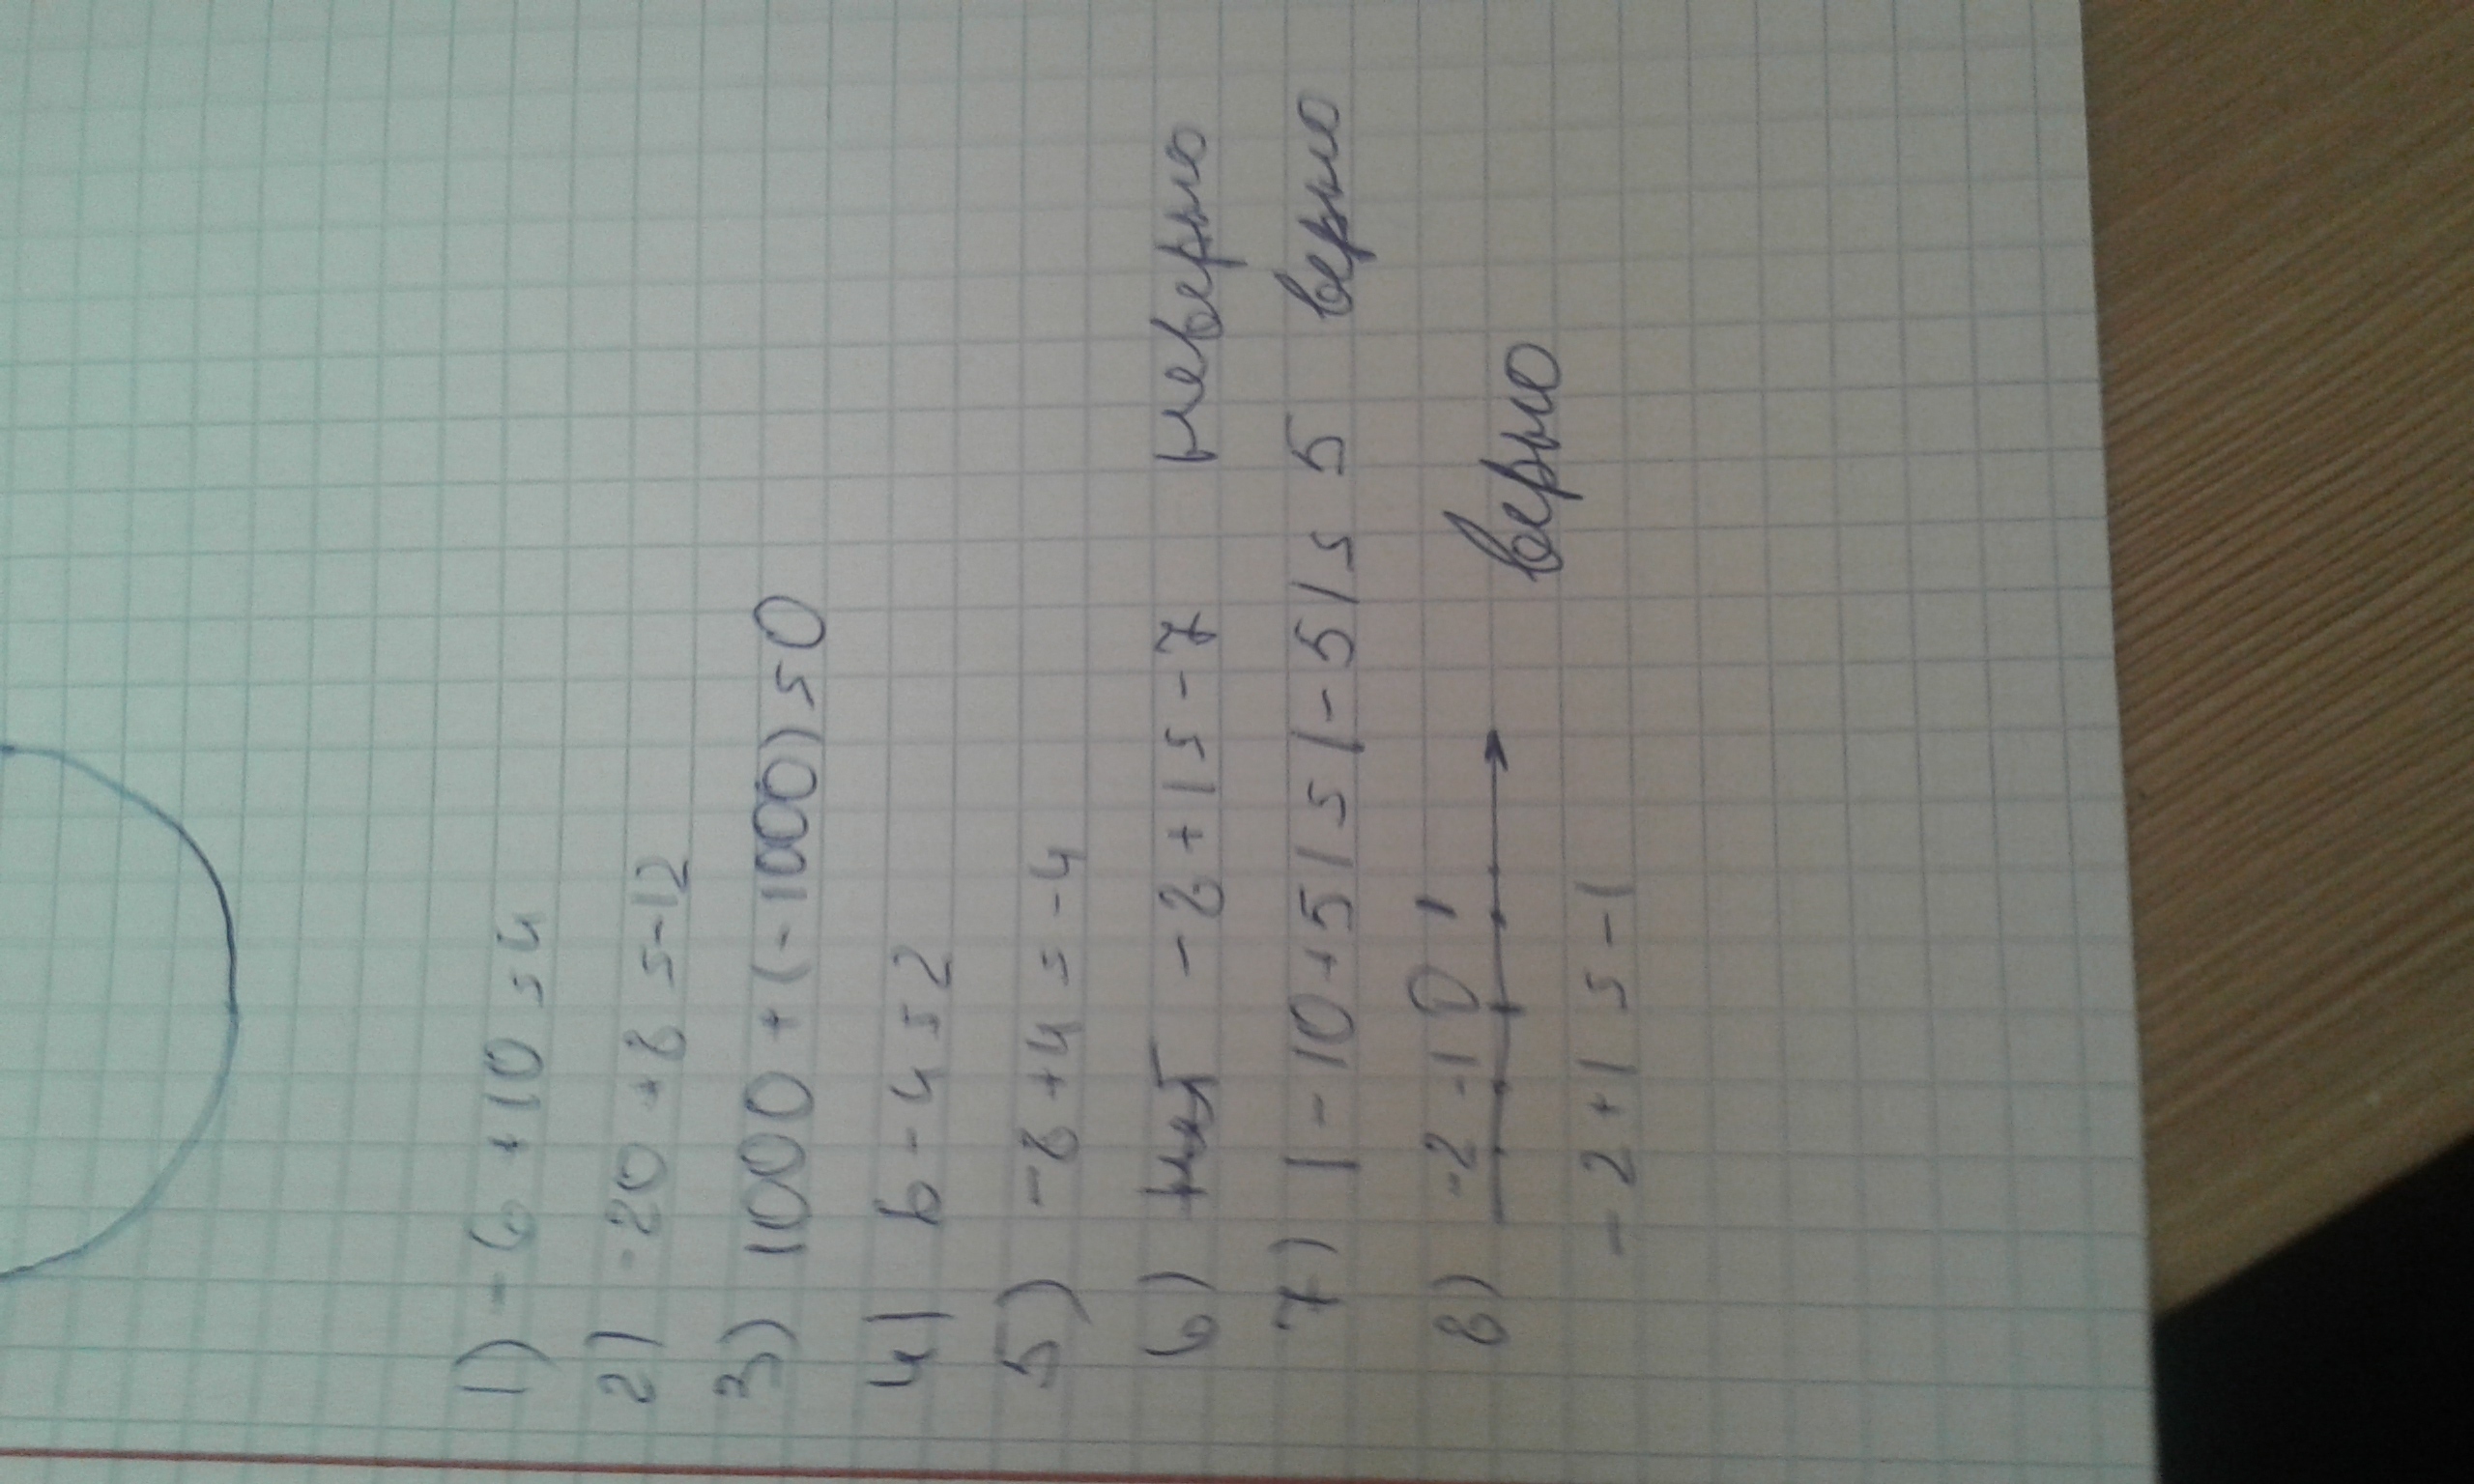 1) -6 + 10 = 4
2) -20 + 8 = -12
3) 1000 + (-1000) = 0
4) 6 - 4 = 2
5) -8 + 4 = -4
6) -8 + 1 = -7 неверно
7) |-10 + 5| = |-5| = 5 верно
8) -2 -1 0 1
верно
-2 + 1 = -1